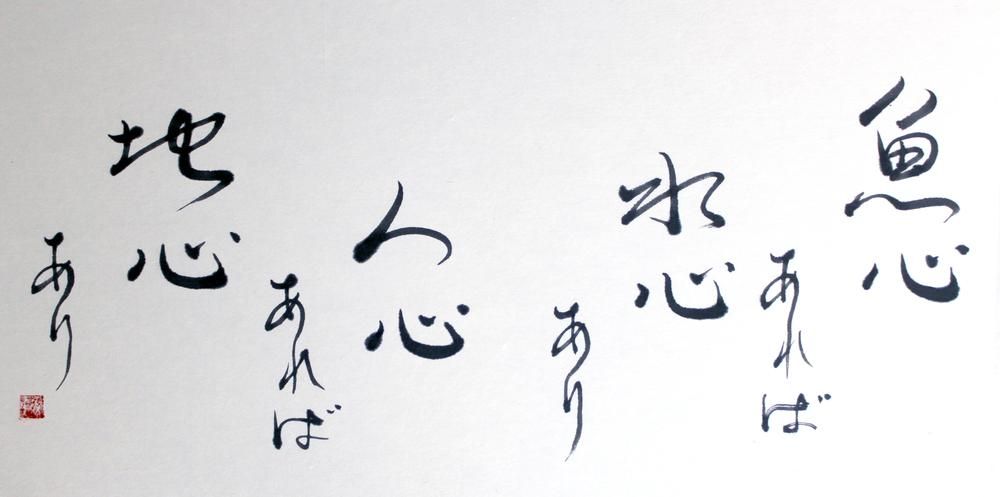 魚心
あれば
水心
あり
人心
あれば
地心
あり